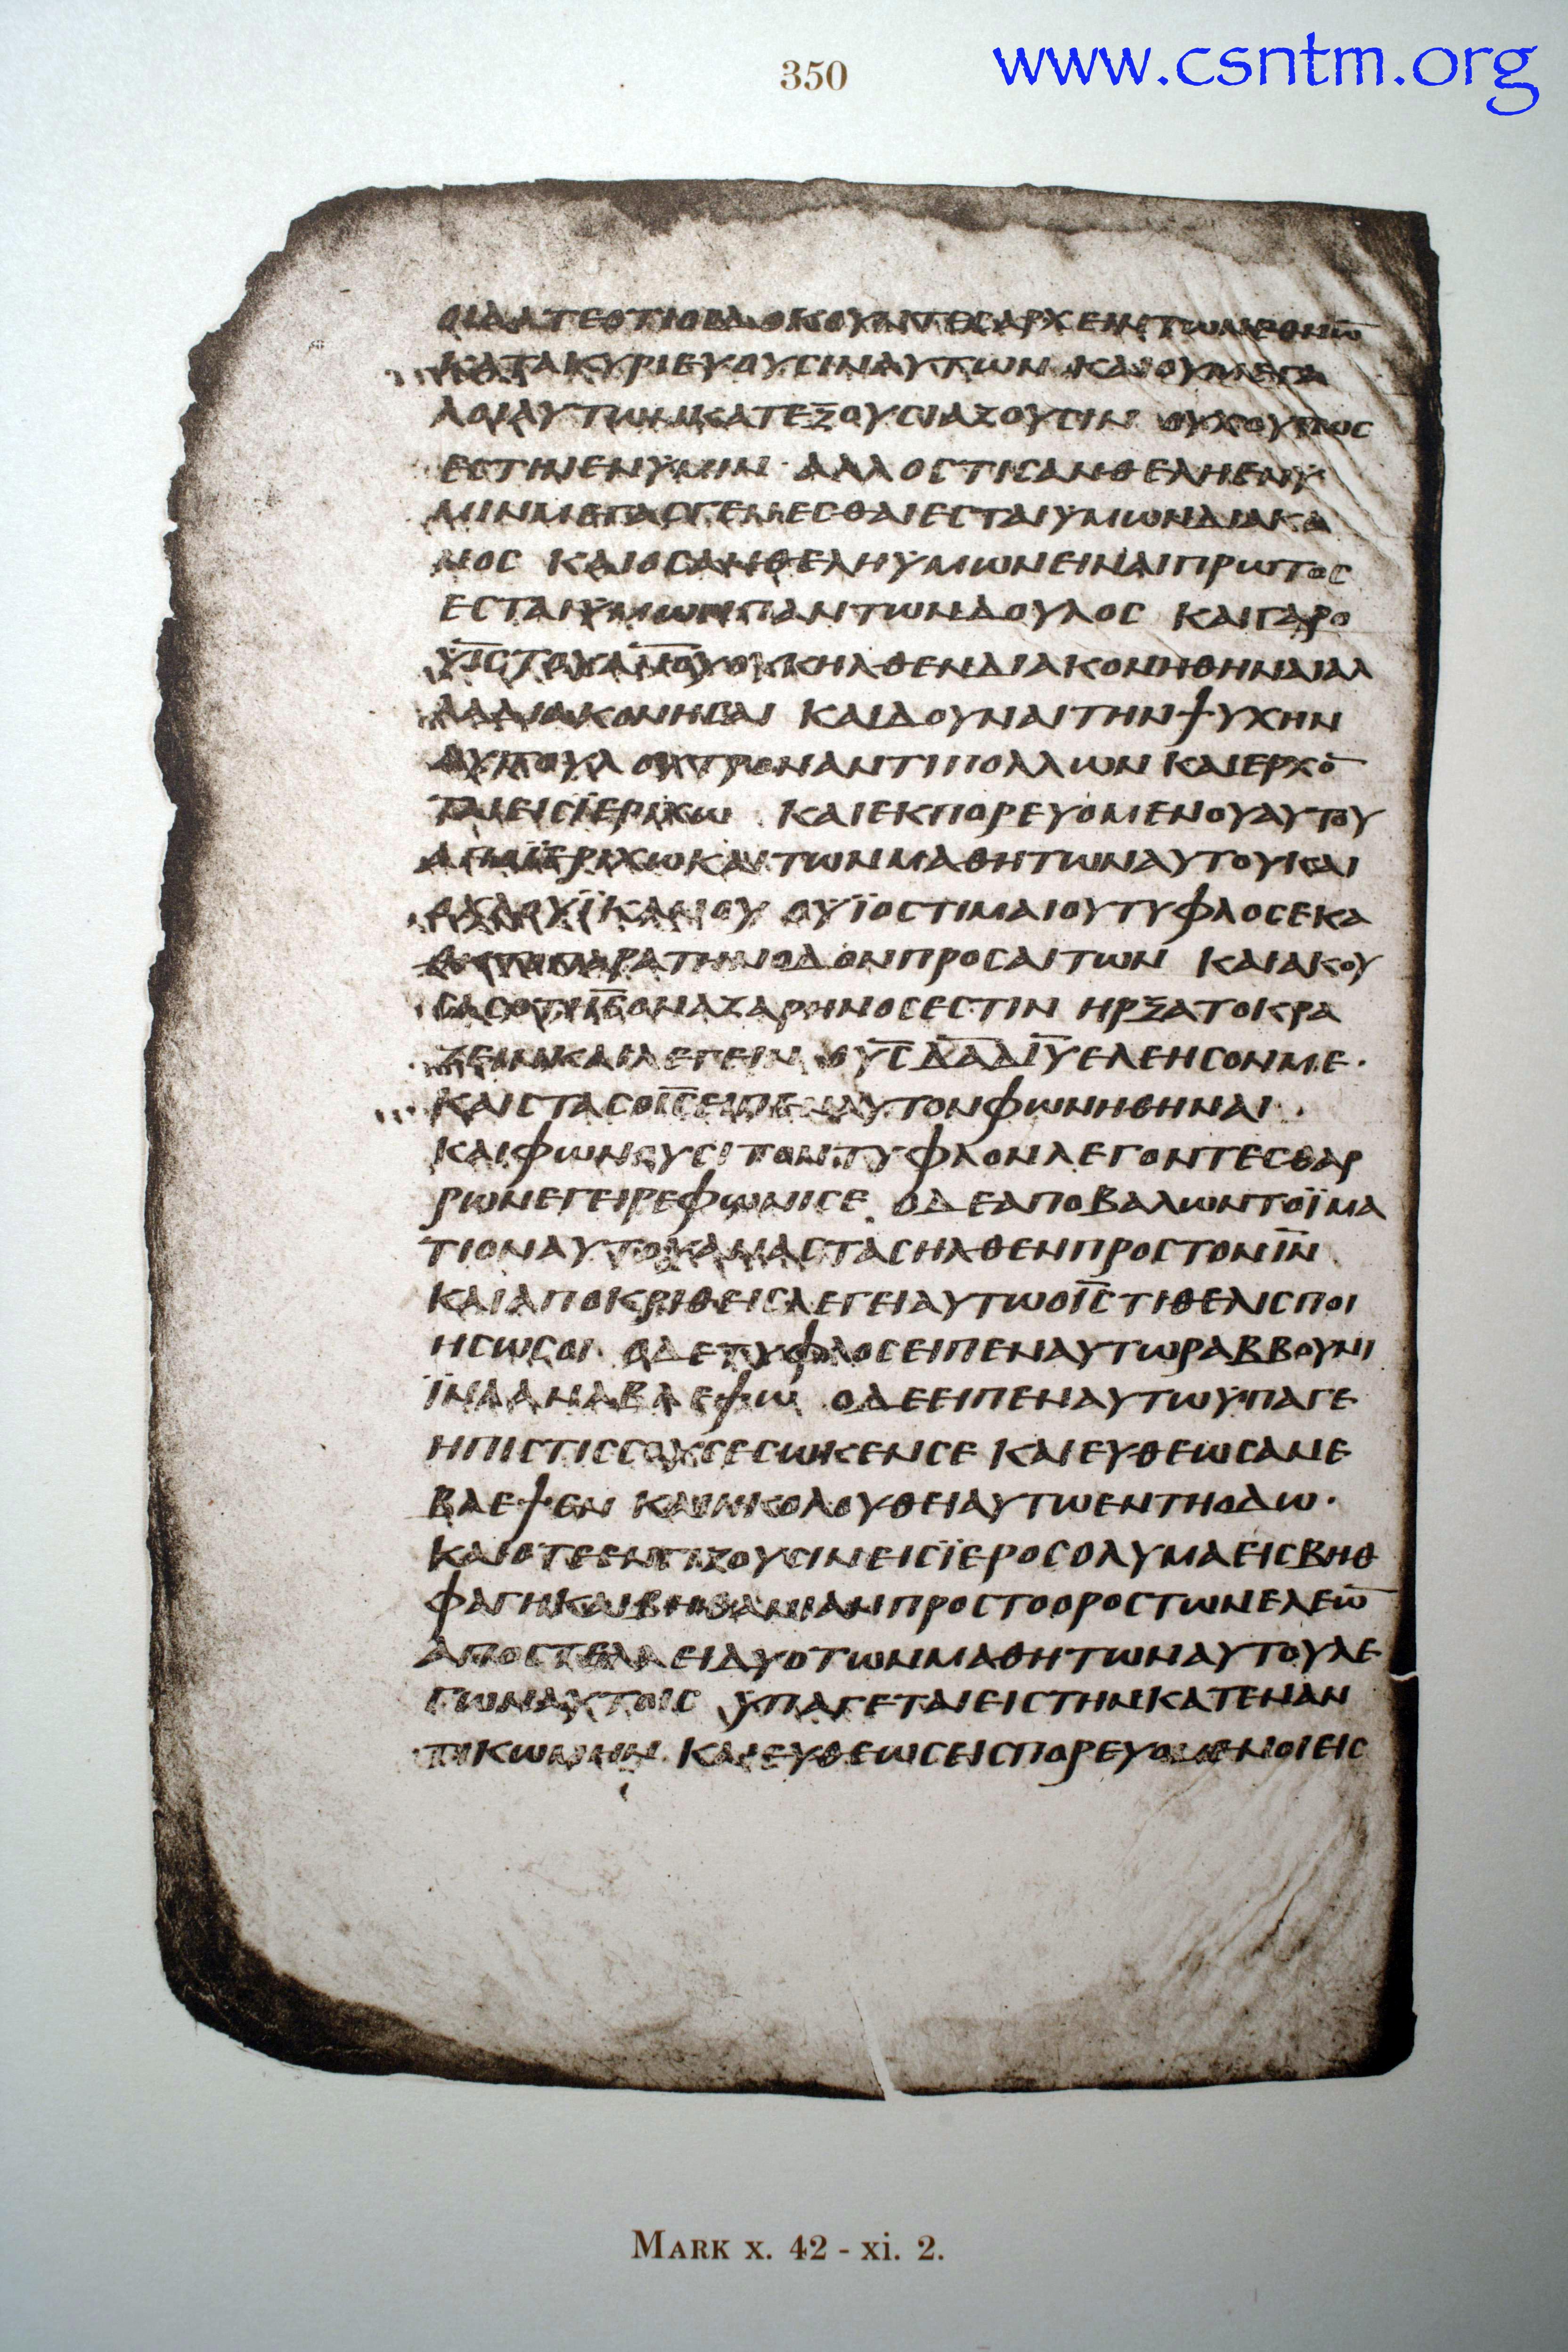 350
www.csntm.org
ΟΙΔΑΤΕΟΤΙΟΙΔΟΚΟΥΝΤΕΣΑΡΧΕΙΝΤΩΝΕΘΝΩ̅
ΚΑΤΑΚΥΡΙΕΥΟΥСΙΝΑΥΤΩΝ ΚΑΙΟΥΜΕΓΑ
ΛΟΙΑΥΤΩΝΚΑΤΕΞΟΥСΙΑΖΟΥСΙΝ ΟΥΧΟΥΤΩС
ΕСΤΙΝΕΝΥΜΙΝ · ΑΛΛΟСΤΙСΑΝΘΕΛΗΕΝΥ
ΜΙΝΜΕΓΑСΓΕΝΕСΘΑΙΕСΤΑΙΥΜΩΝΔΙΑΚΟ
ΝΟС ΚΑΙΟСΑΝΘΕΛΗΥΜΩΝΕΙΝΑΙΠΡΩΤΟС
ΕСΤΑΙΥΜΩΝΠΑΝΤΩΝΔΟΥΛΟС ΚΑΙΓΑΡΟ
Υ̅Ι̅С̅ΤΟΥΑ̅Ν̅Ο̅Υ̅ΟΥΚΗΛΘΕΝΔΙΑΚΟΝΗΘΗΝΑΙΑΛ
ΛΑΔΙΑΚΟΝΗСΑΙ ΚΑΙΔΟΥΝΑΙΤΗΝΨΥΧΗΝ
ΑΥΤΟΥΛΟΥΤΡΟΝΑΝΤΙΠΟΛΛΩΝ ΚΑΙΕΡΧΟ̅
ΤΑΙΕΙСΪΕΡΙΧΩ ΚΑΙΕΚΠΟΡΕΥΟΜΕΝΟΥΑΥΤΟΥ
ΑΠΟΪΕΡΙΧΩΚΑΙΤΩΝΜΑΘΗΤΩΝΑΥΤΟΥΚΑΙ
ΟΧΛΟΥΪΚΑΝΟΥ ΟΥΪΟСΤΙΜΑΙΟΥΤΥΦΛΟСΕΚΑ
ΠΑΡΑΤΗΝΟΔΟΝΠΡΟСΑΙΤΩΝ ΚΑΙΑΚΟΥ
СΑСΟΤΙΙ̅С̅ΟΝΑΖΑΡΗΝΟСΕСΤΙΝ ΗΡΞΑΤΟΚΡΑ
ΖΕΙΝΚΑΙΛΕΓΕΙΝ ΟΥ̅С̅ Δ̅Α̅Δ̅Ι̅Υ̅ΕΛΕΗСΟΝΜΕ ·
ΚΑΙСΤΑСΟΙ̅С̅ΕΙΠΕΝΑΥΤΟΝΦΩΝΗΘΗΝΑΙ ·
ΚΑΙΦΩΝΟΥСΙΤΟΝΤΥΦΛΟΝΛΕΓΟΝΤΕСΘΑΡ
ΡΩΝΕΓΕΙΡΕΦΩΝΙСΕ ΟΔΕΑΠΟΒΑΛΩΝΤΟΪΜΑ
ΤΙΟΝΑΥΤΟΥΑΝΑСΤΑСΗΛΘΕΝΠΡΟСΤΟΝΙ̅Ν̅
ΚΑΙΑΠΟΚΡΙΘΕΙСΛΕΓΕΙΑΥΤΩΟΙ̅С̅ΤΙΘΕΛΙСΠΟΙ
ΗСΩСΟΙ ΟΔΕΤΥΦΛΟСΕΙΠΕΝΑΥΤΩΡΑΒΒΟΥΝΙ
ΪΝΑΑΝΑΒΛΕΨΩ ΟΔΕΕΙΠΕΝΑΥΤΩΥΠΑΓΕ
ΗΠΙСΤΙССΟΥСΕСΩΚΕΝСΕ ΚΑΙΕΥΘΕΩСΑΝΕ
ΒΛΕΨΕΝ ΚΑΙΗΚΟΛΟΥΘΕΙΑΥΤΩΕΝΤΗΟΔΩ ·
ΚΑΙΟΤΕΕΝΓΙΖΟΥСΙΝΕΙСΪΕΡΟСΟΛΥΜΑΕΙСΒΗΘ
ΦΑΓΗΚΑΙΒΗΘΑΝΙΑΝΠΡΟСΤΟΟΡΟСΤΩΝΕΛΕΩ̅
ΑΠΟСΤΕΛΛΕΙΔΥΟΤΩΝΜΑΘΗΤΩΝΑΥΤΟΥΛΕ
ΓΩΝΑΥΤΟΙС ΥΠΑΓΕΤΑΙΕΙСΤΗΝΚΑΤΕΝΑΝ
ΤΙΚΩΜΗΝ ΚΑΙΕΥΘΕΩСΕΙСΠΟΡΕΥΟΜΕΝΟΙΕΙС
MARK x. 42 - xi. 2.